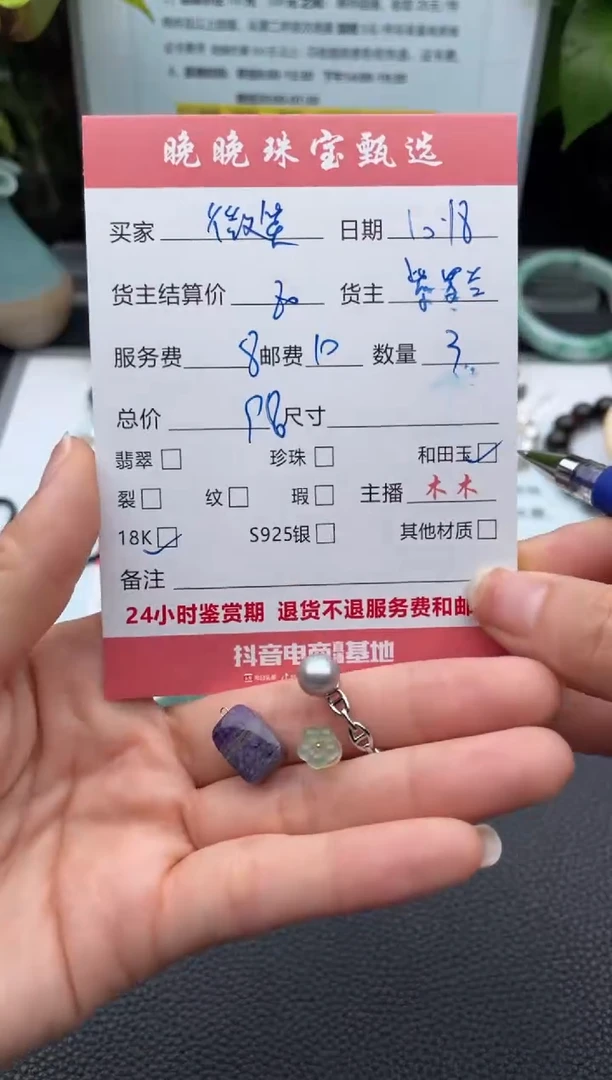 晚晚珠宝甄选
买家 微笑 日期 10.18
货主结算价 80 货主
服务费 8 邮费 10 数量 3
总价 98 尺寸
翡翠 珍珠 和田玉
裂 纹 瑕 主播 木木
18K S925银 其他材质
备注
24小时鉴赏期 退货不退服务费和邮
抖音电商 基地